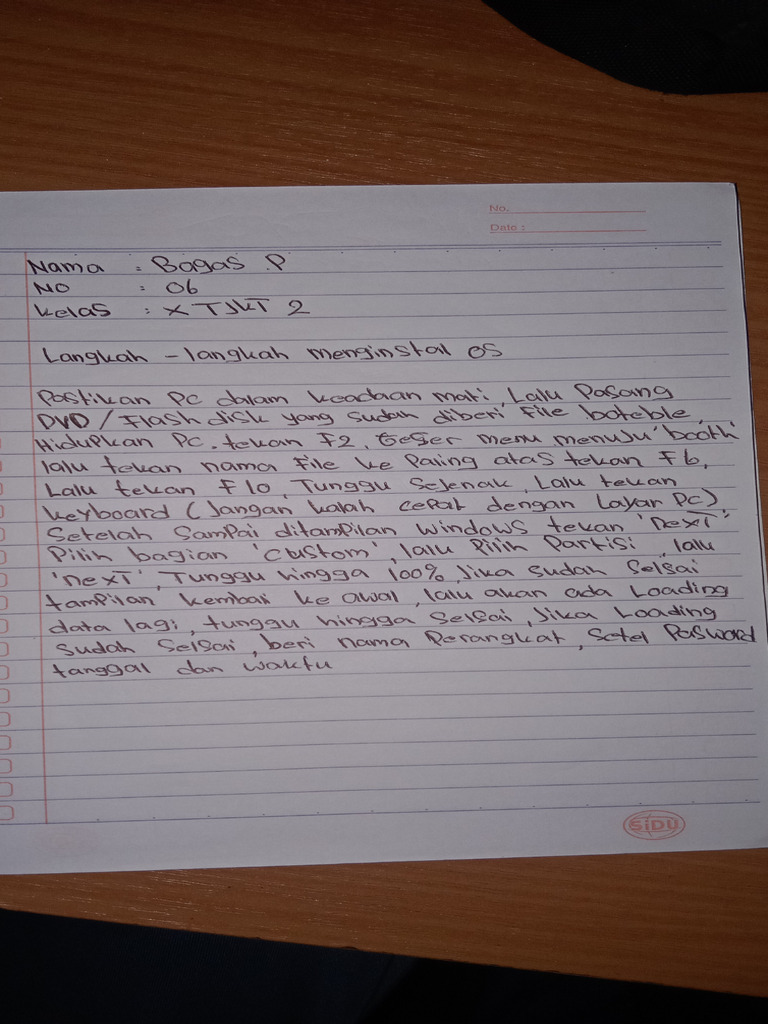 No.
Date :
Nama : Bagas P
No : 06
Kelas : X TJKT 2
Langkah - langkah menginstal OS
Pastikan PC dalam keadaan mati, Lalu Pasang
DVD / Flash disk yang sudah diberi File boteble,
Hidupkan PC, tekan F2, Geser menu menuju 'booth'
lalu tekan nama File ke Paling atas tekan F6,
Lalu tekan F10, Tunggu Sejenak, Lalu tekan
keyboard (Jangan kalah cepat dengan Layar PC)
Setelah Sampai ditampilan windows tekan 'next'
Pilih bagian 'custom', lalu Pilih Partisi, lalu
'next', Tunggu hingga 100%, Jika sudah Selsai
tampilan kembai ke awal, lalu akan ada Loading
data lagi, tunggu hingga Selsai, Jika Loading
sudah Selsai, beri nama Perangkat, Setel Pasword
tanggal dan waktu
SiDU